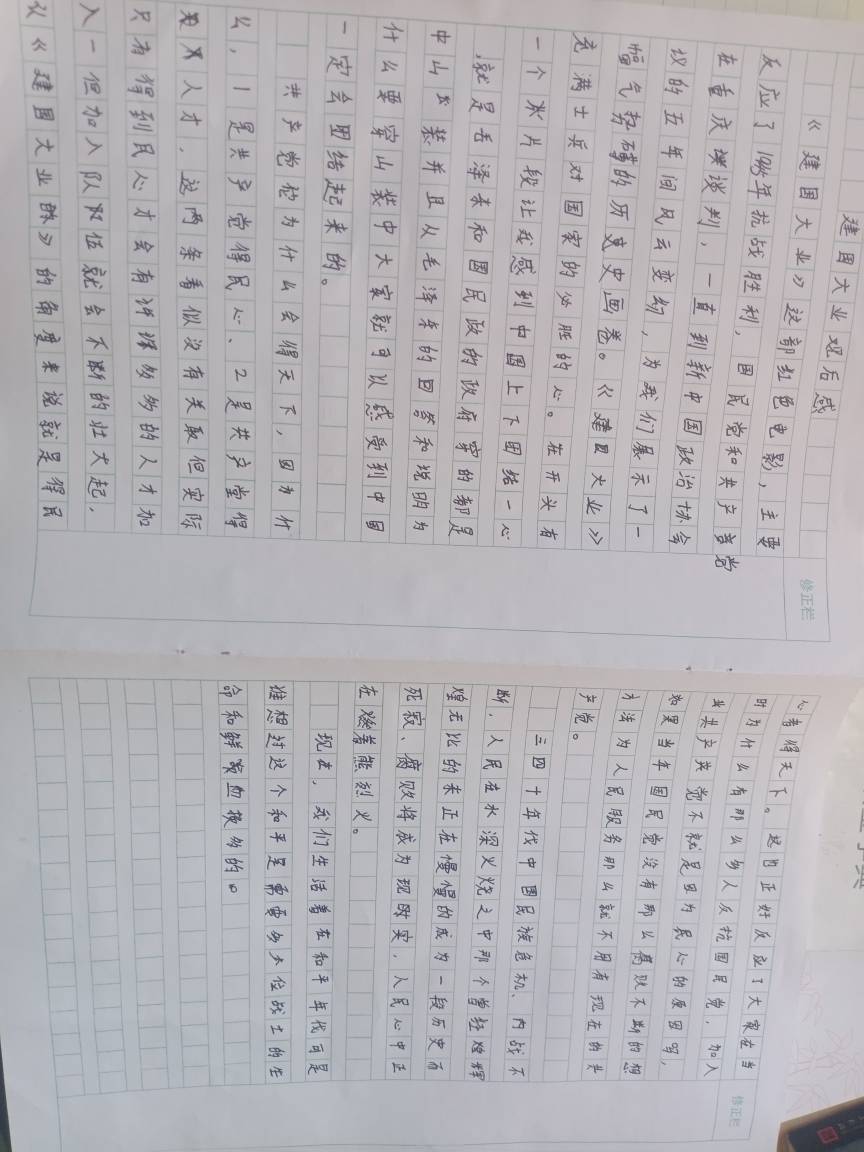 建国大业观后感
《建国大业》这部红色电影，主要
反应了1945年抗战胜利，国民党和共产党
在重庆谈判，一直到新中国政治协会
议的五年间风云变幻，为我们展示了一
幅气势磅的历史画卷。《建国大业》
充满士兵对国家的必胜的心。在开头有
一个米片段让我感到中国上下团结一心
就是毛泽东和国民政的政府穿的都是
中山装并且从毛泽东的回答和说明为
什么要穿山装中大家就可以感受到中国
一定会团结起来的。
共产党枪为什么会得天下，因为什
么，1是共产党得民心、2是共产党得
人才，这两条看似没有关取但实际
只有得到民心才会有许多多的人才加
入一但加入队伍就会不断的壮大起，
从《建国大业》的角度来说就是得民
心者得天下。这也正好反应了大家在当
时为什么有那么多人反抗国民党，加入
共产党不就是因为民心的原因吗，
如果当年国民党没有那么腐败不断的想
方法为人民服务那么就不用有现在的共
产党。
三四十年代中国民族危机、内战不
断，人民在水深火烧之中那个曾经辉
煌无比的未正在慢慢的成为一段历史而
死寂、腐败将成为现实，人民心中正
在燃着熊烈火。
现在，我们生活着在和平年代可是
谁想过这个和平是需要多少位战士的生
命和鲜血换多的。
修正栏
修正栏